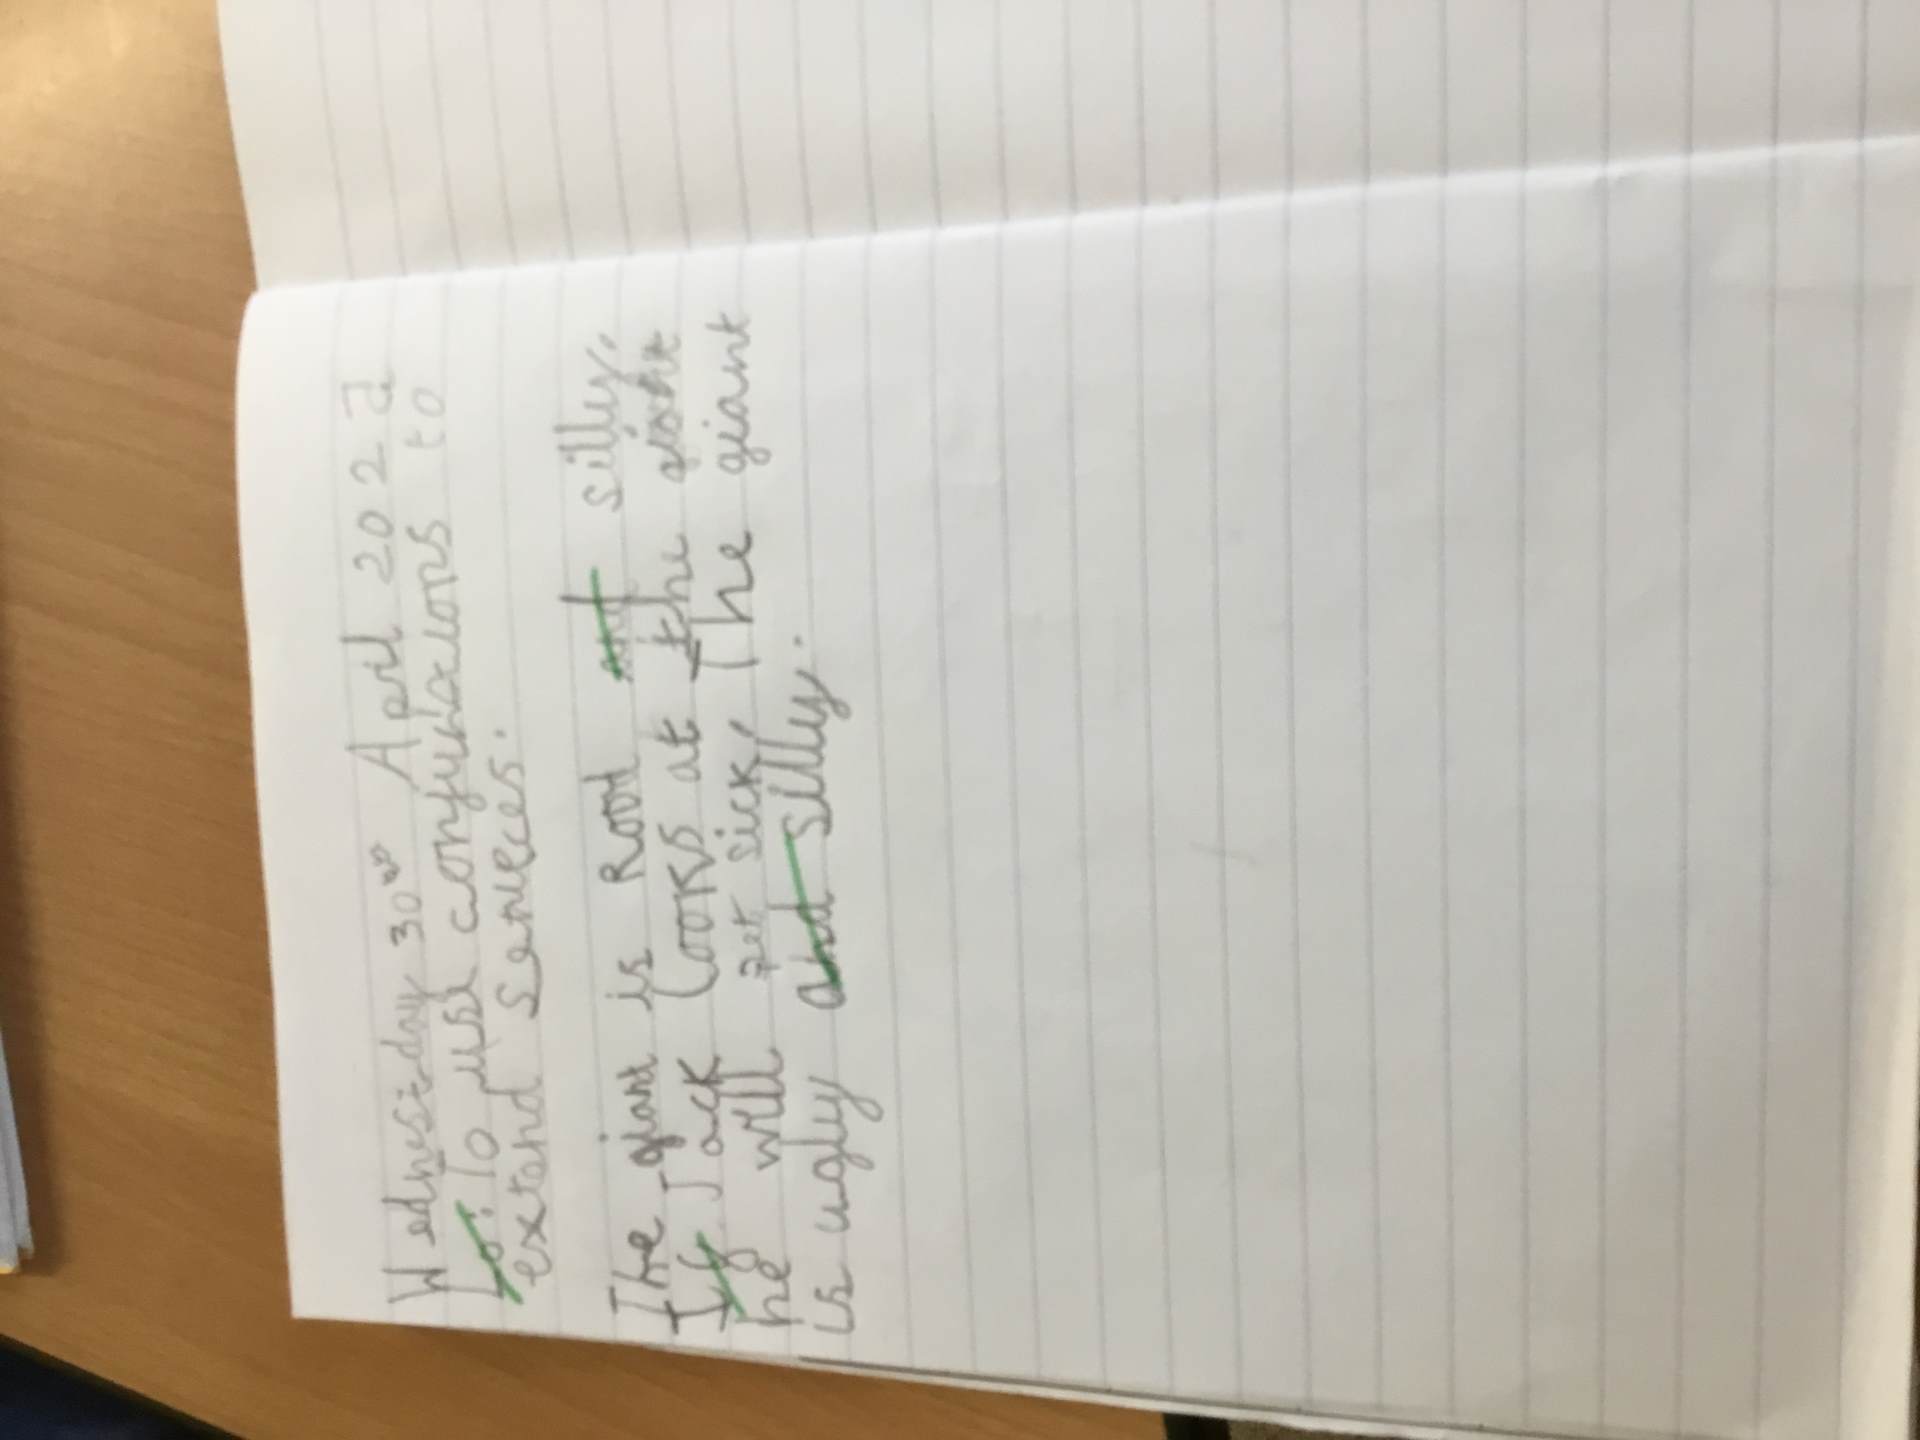 Wednesday 30th April 202
Lo: To use conjuctions to
extend senteces.
The giant is Rood and silly.
If Jack Looks at the giant
he will get sick, The giant
is ugly and silly.